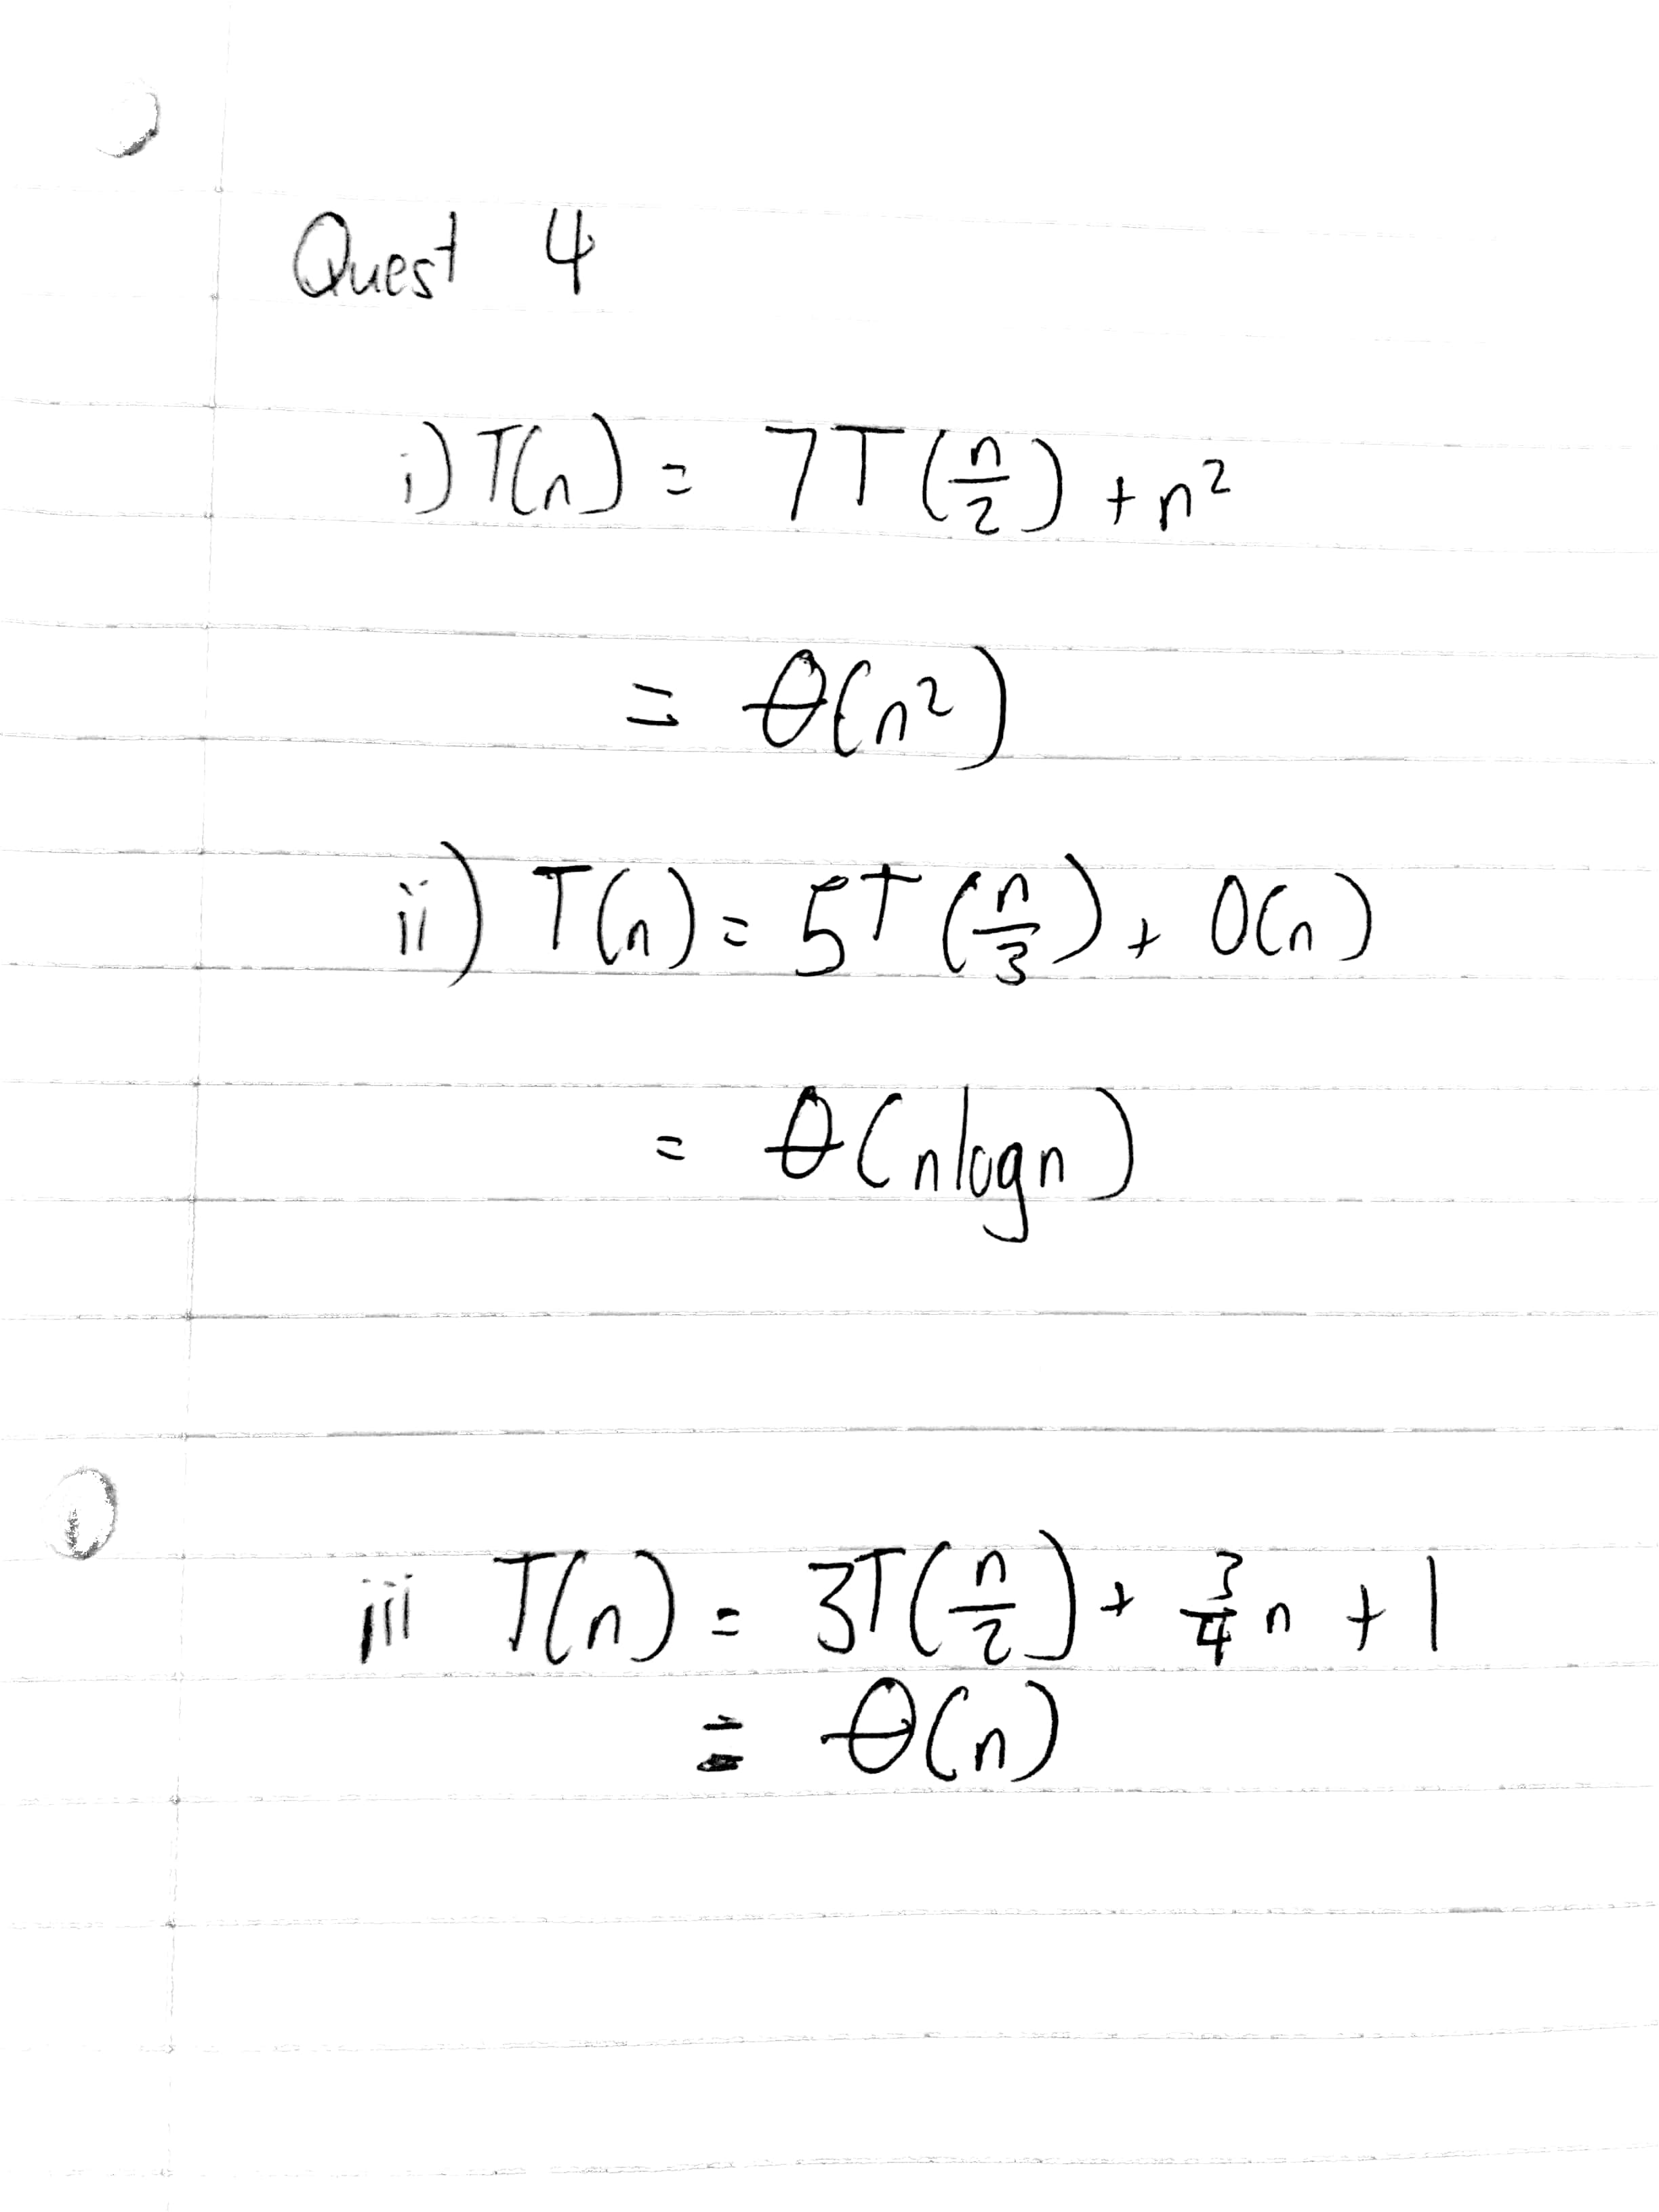 Quest 4
i) T(n) = 7T(n/2) + n²
= θ(n²)
ii) T(n) = 5T(n/3) + O(n)
= θ(nlogn)
iii T(n) = 3T(n/2) + 3/4 n + 1
= θ(n)